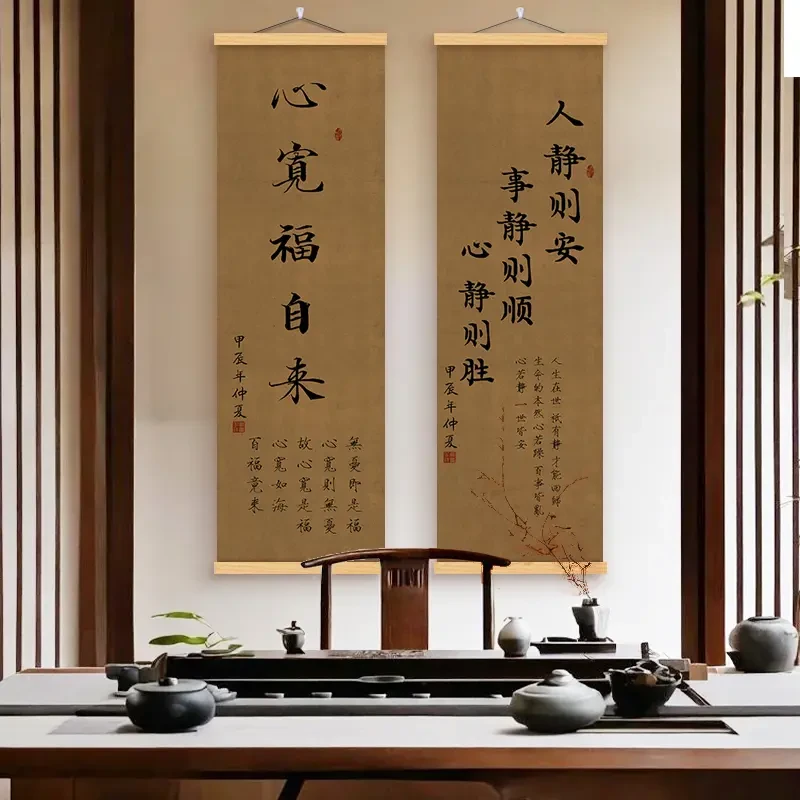 心寬福自来
無憂即是福
心寬則無憂
故心寬是福
心寬如海
百福竟来
甲辰年仲夏
人静则安
事静则顺
心静则胜
人生在世 祇有静才能回歸
生命的本然心若缘 百事皆亂
心若静一世皆安
甲辰年仲夏